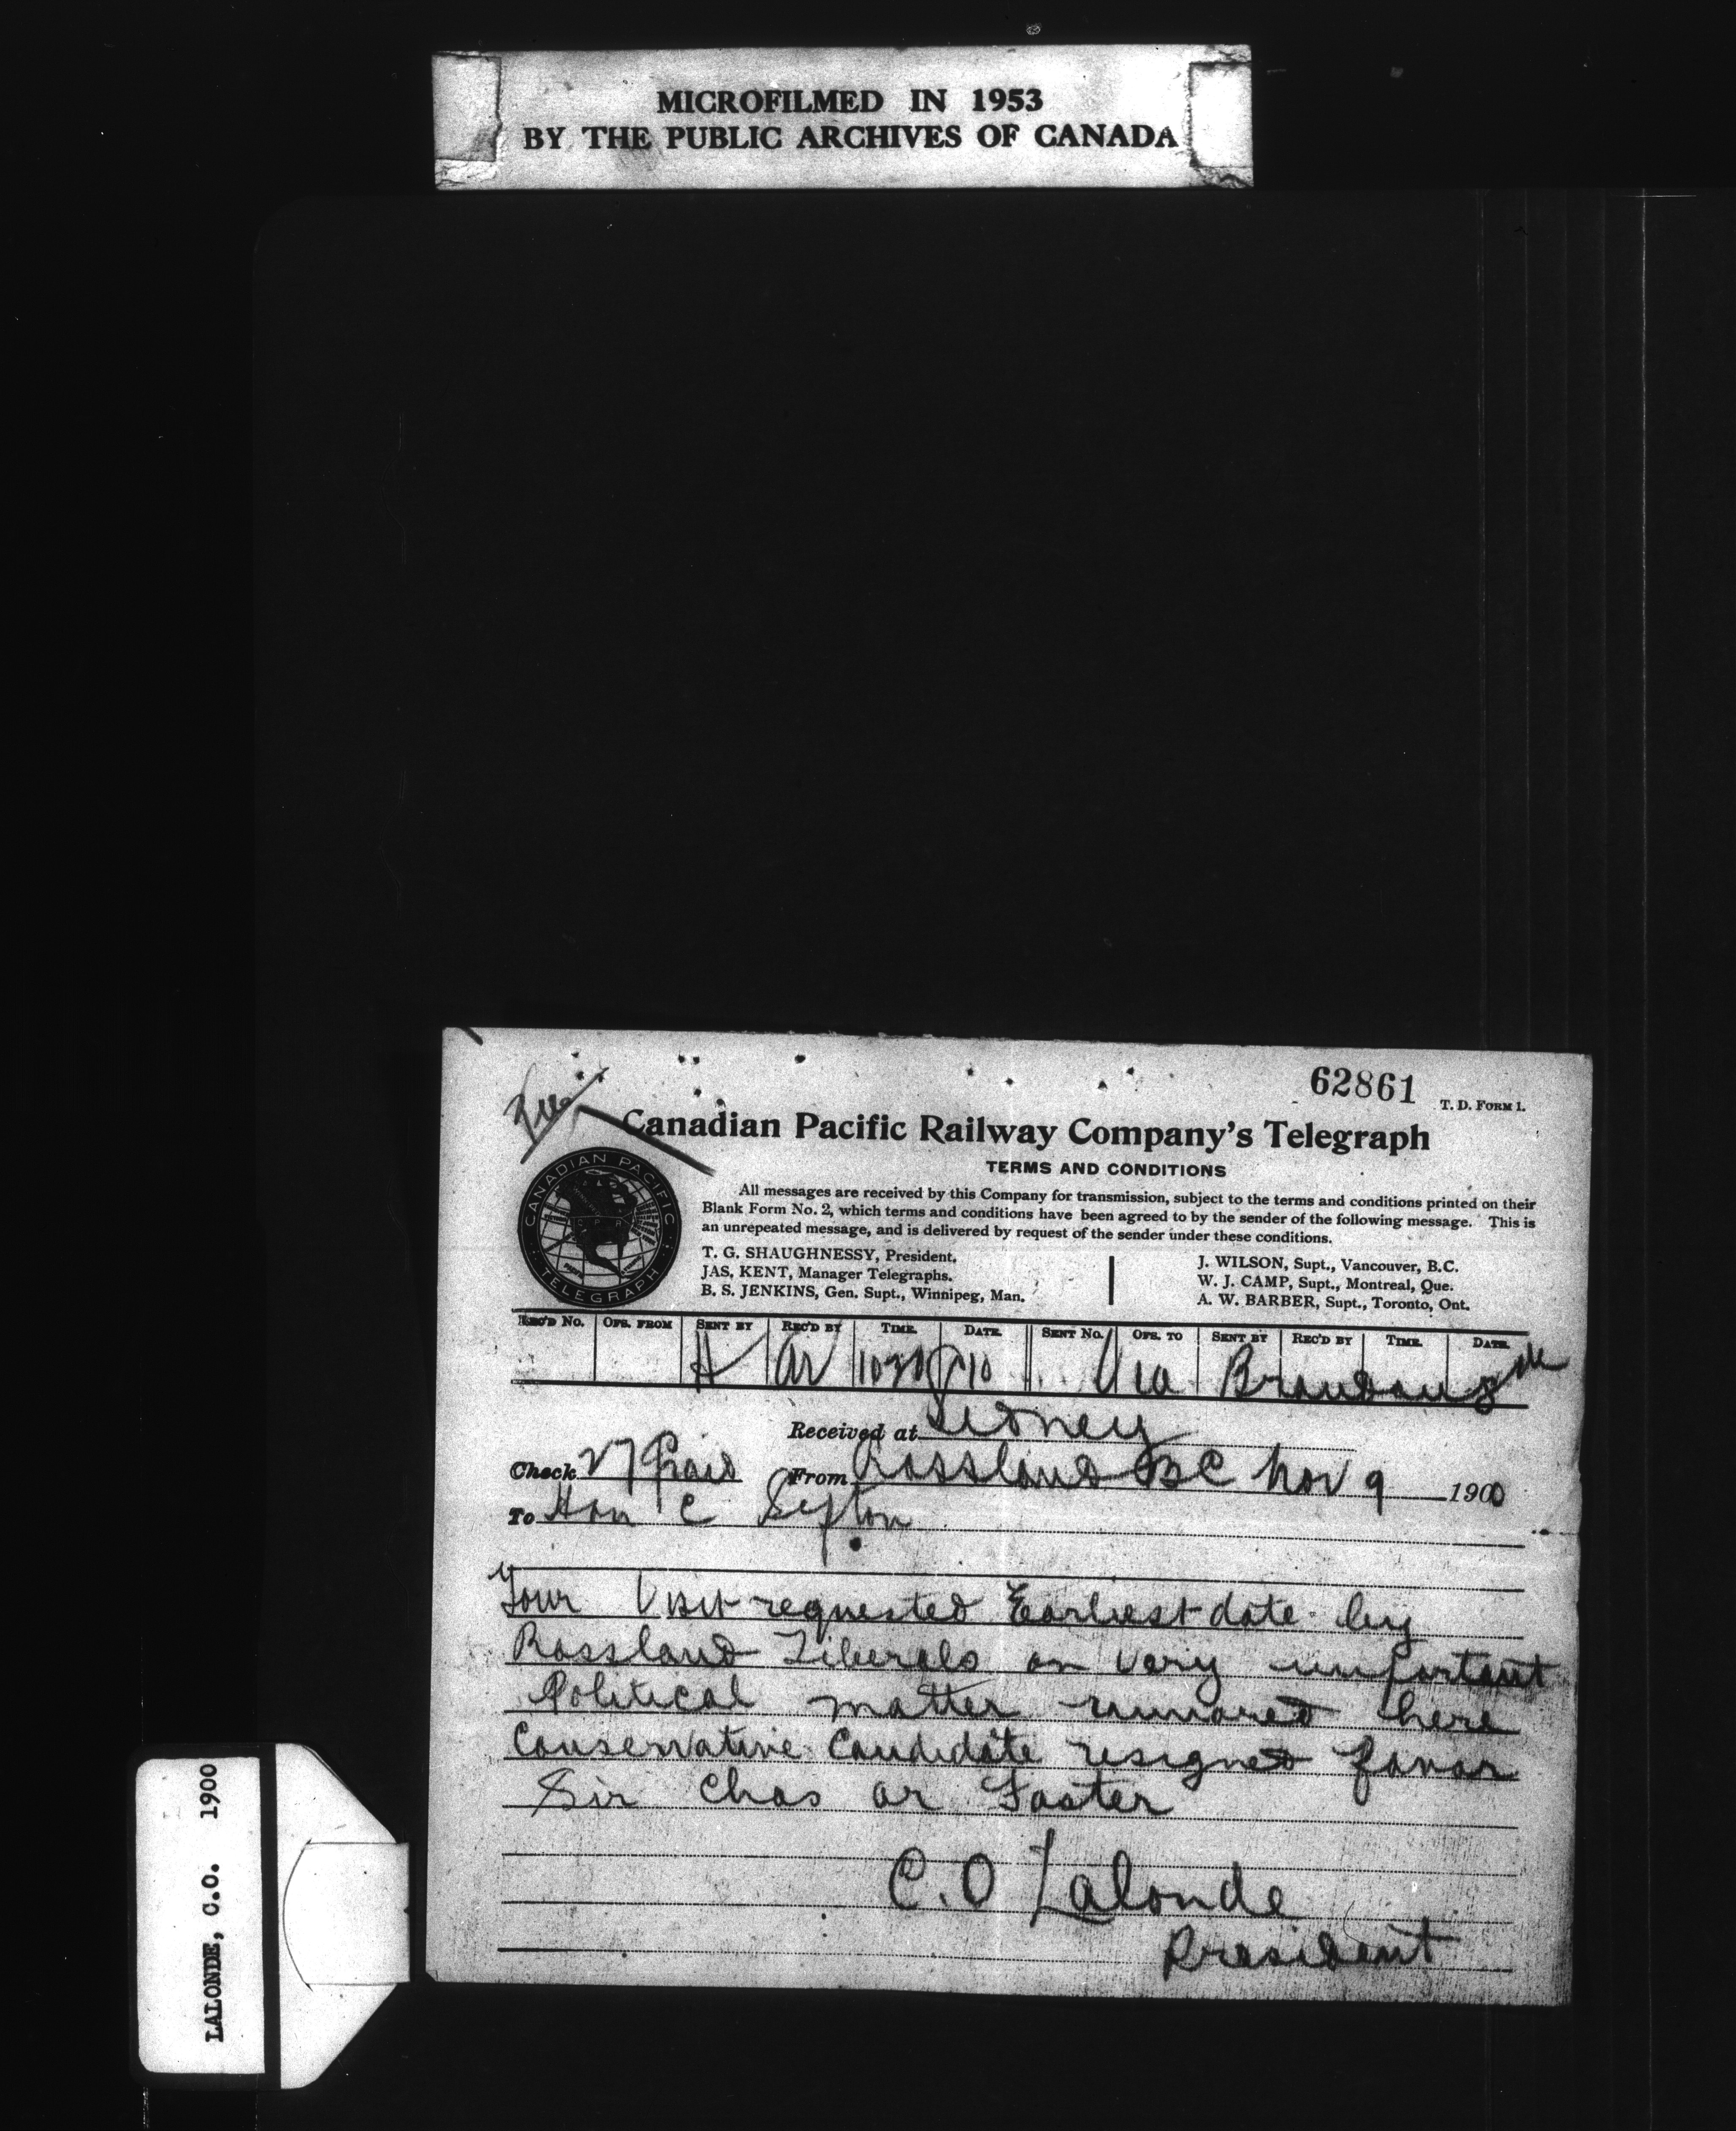 MICROFILMED IN 1953
BY THE PUBLIC ARCHIVES OF CANADA
62861
T. D. FORM 1.
Canadian Pacific Railway Company's Telegraph
TERMS AND CONDITIONS
All messages are received by this Company for transmission, subject to the terms and conditions printed on their
Blank Form No. 2, which terms and conditions have been agreed to by the sender of the following message. This is
an unrepeated message, and is delivered by request of the sender under these conditions.
CANADIAN PACIFIC
TELEGRAPH
T. G. SHAUGHNESSY, President.
JAS. KENT, Manager Telegraphs.
B. S. JENKINS, Gen. Supt., Winnipeg, Man.
J. WILSON, Supt., Vancouver, B.C.
W. J. CAMP, Supt., Montreal, Que.
A. W. BARBER, Supt., Toronto, Ont.
REC'D NO. OFS. FROM SENT BY REC'D BY TIME. DATE. SENT NO. OFS. TO SENT BY REC'D BY TIME. DATE.
Via Brandon
Received at Sidney
Check 27 Paid From Rossland BC Nov 9 1900
To Hon C Sifton
Your Visit requested Earliest date by
Rossland Liberals on very important
Political matter rumored here
Conservative Candidate resigned favor
Sir Chas or Foster
C. O Lalonde
President
LALONDE, C.O. 1900